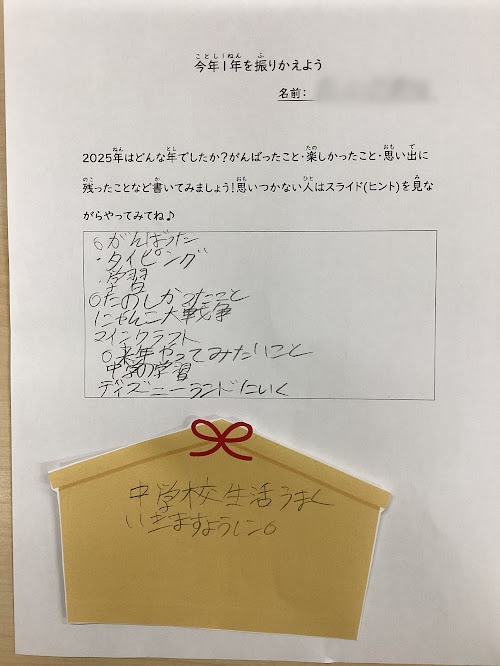 今年1年を振りかえよう
名前:
2025年はどんな年でしたか?がんばったこと・楽しかったこと・思い出に
残ったことなど書いてみましょう!思いつかない人はスライド(ヒント)を見な
がらやってみてね♪
○がんばった
・タイピング
・学習
○たのしかったこと
にゃんこ大戦争
マインクラフト
○来年やってみたいこと
中学の学習
ディズニーランドにいく
中学校生活うまく
いきますように。